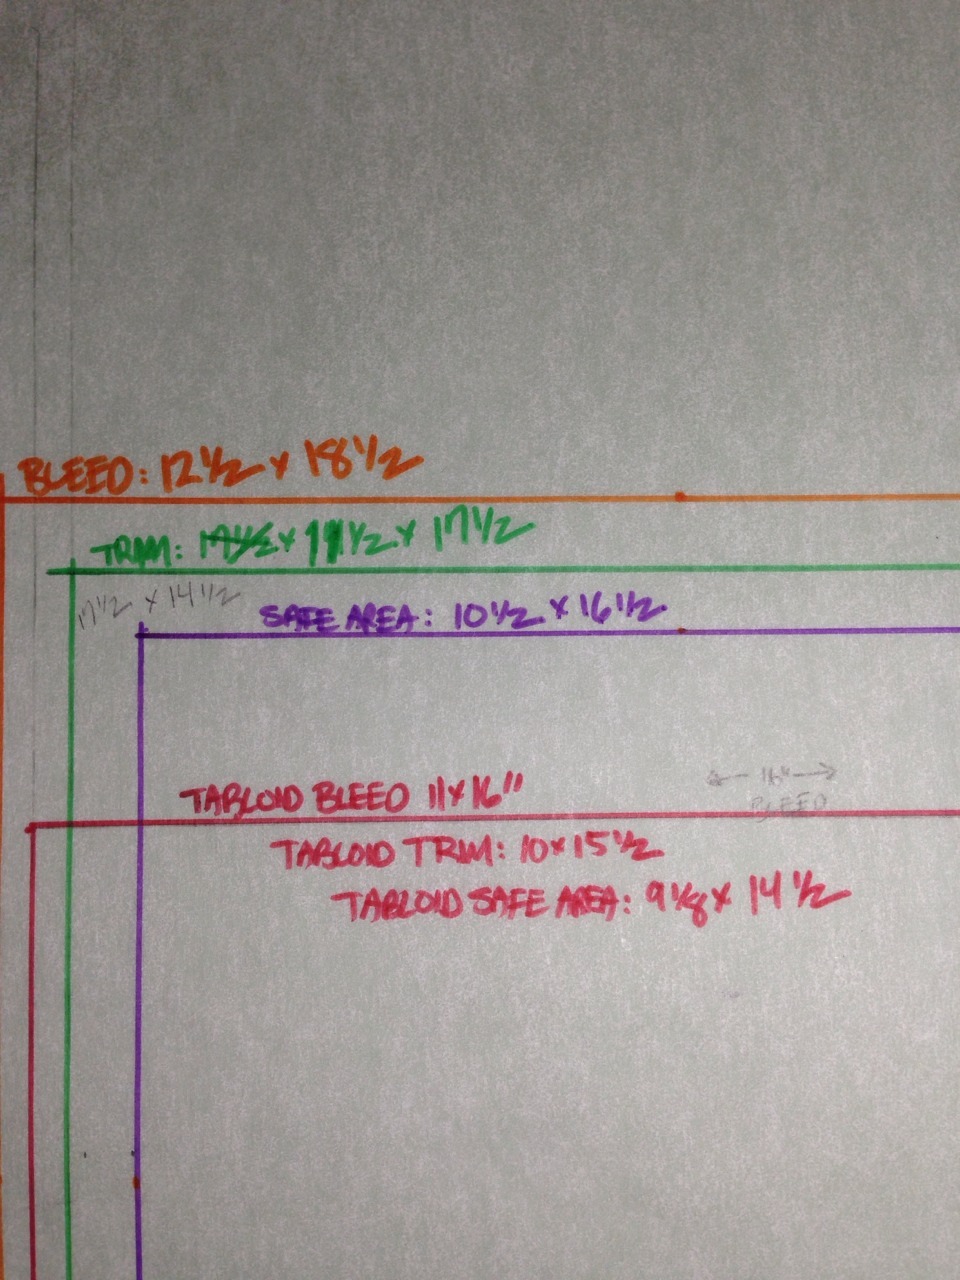 BLEED: 12 1/2 x 18 1/2
TRIM: x 11 1/2 x 17 1/2
17 1/2 x 14 1/2
SAFE AREA: 10 1/2 x 16 1/2
TABLOID BLEED 11 x 16"
16"
BLEED
TABLOID TRIM: 10 x 15 1/2
TABLOID SAFE AREA: 9 1/8 x 14 1/2